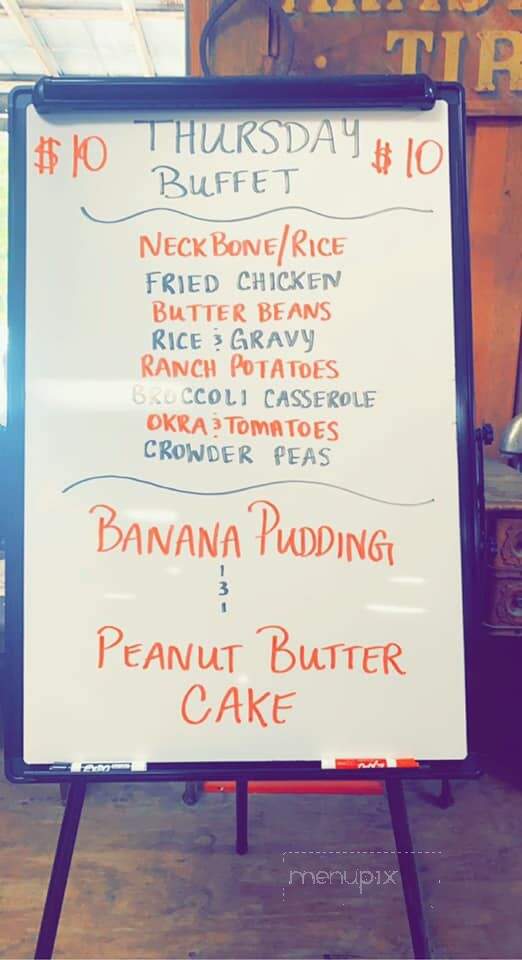 TIR
$10 THURSDAY $10
BUFFET
NECKBONE/RICE
FRIED CHICKEN
BUTTER BEANS
RICE & GRAVY
RANCH POTATOES
BROCCOLI CASSEROLE
OKRA & TOMATOES
CROWDER PEAS
BANANA PUDDING
&
PEANUT BUTTER
CAKE
EXPO
menupix